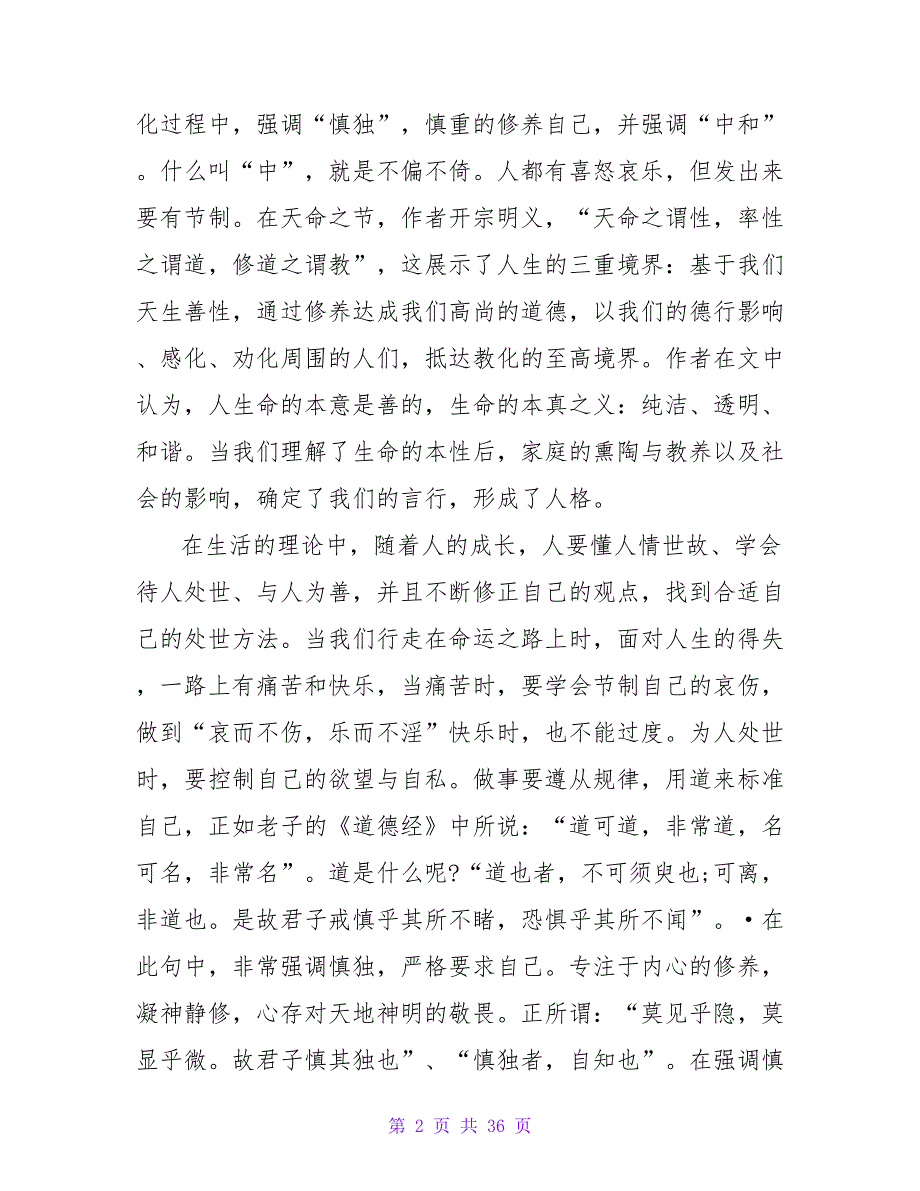 化过程中，强调“慎独”，慎重的修养自己，并强调“中和”
。什么叫“中”，就是不偏不倚。人都有喜怒哀乐，但发出来
要有节制。在天命之节，作者开宗明义，“天命之谓性，率性
之谓道，修道之谓教”，这展示了人生的三重境界：基于我们
天生善性，通过修养达成我们高尚的道德，以我们的德行影响
、感化、劝化周围的人们，抵达教化的至高境界。作者在文中
认为，人生命的本意是善的，生命的本真之义：纯洁、透明、
和谐。当我们理解了生命的本性后，家庭的熏陶与教养以及社
会的影响，确定了我们的言行，形成了人格。
在生活的理论中，随着人的成长，人要懂人情世故、学会
待人处世、与人为善，并且不断修正自己的观点，找到合适自
己的处世方法。当我们行走在命运之路上时，面对人生的得失
，一路上有痛苦和快乐，当痛苦时，要学会节制自己的哀伤，
做到“哀而不伤，乐而不淫”快乐时，也不能过度。为人处世
时，要控制自己的欲望与自私。做事要遵从规律，用道来标准
自己，正如老子的《道德经》中所说：“道可道，非常道，名
可名，非常名”。道是什么呢?“道也者，不可须臾也;可离，
非道也。是故君子戒慎乎其所不睹，恐惧乎其所不闻”。•在
此句中，非常强调慎独，严格要求自己。专注于内心的修养，
凝神静修，心存对天地神明的敬畏。正所谓：“莫见乎隐，莫
显乎微。故君子慎其独也”、“慎独者，自知也”。在强调慎
第 2 页 共 36 页